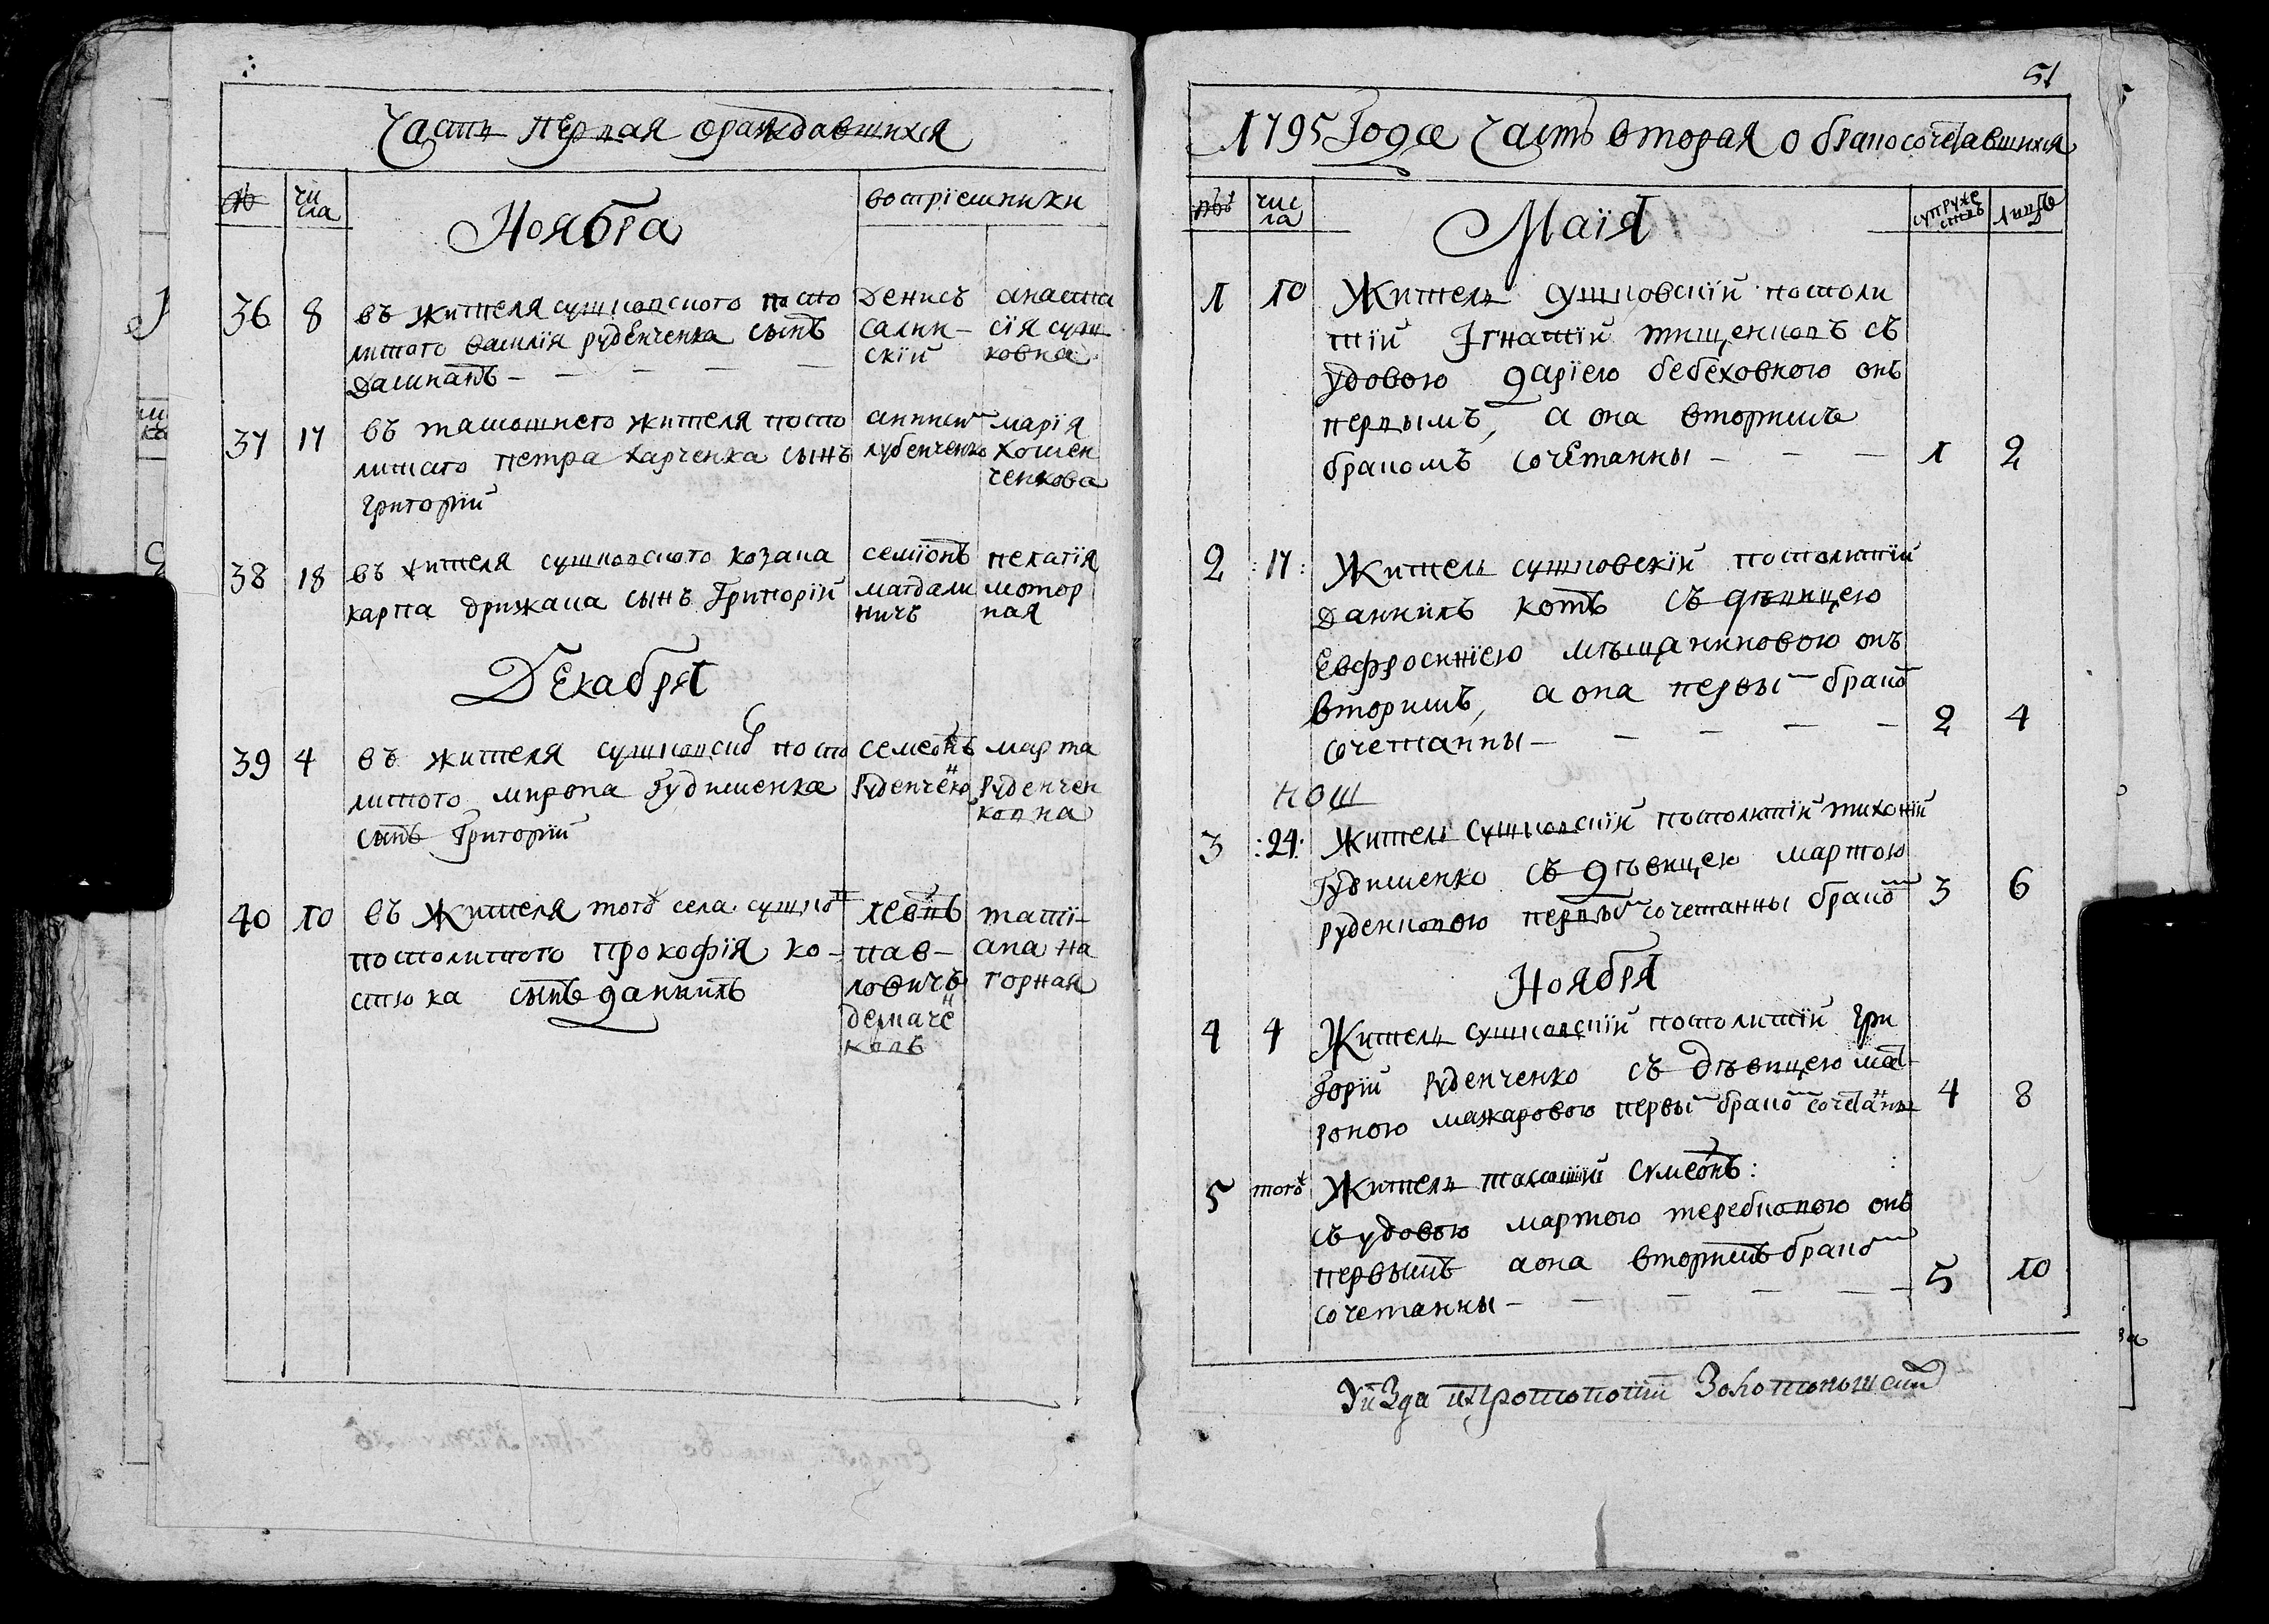 Часть первая ораждавшихся
№ чи
сла
Ноябра
воспрiемники
36 8 въ жителя сушковского поспо
литого василïя руденченка сынъ
Дамианъ – – – – –
Денисъ
салин-
скïй
анаста
сïя суш
ковна
37 17 въ тамошнего жителя поспо
литаго петра харченка сынъ
григорïй
лубенченко
марïя
хомен
ченкова
38 18 въ жителя сушковского козака
карпа дрижака сынъ Григорïй
семïонъ
магдали
ничъ
пелагïя
мотор
ная
Декабря
39 4 въ жителя сушковско поспо
литого мирона Гудименка
сынъ Григорïй
семеонъ
Руденченко
марта
Руденчен
ковна
40 10 въ жителя того села сушко
посполитого прокофïя ко-
стюка сынъ данïилъ
левъ
пав-
ловичъ
деркаче
ковъ
татï-
ана на
горная
51
1795 Года Часть вторая о бракосочетавшихся
чис
ла
Маïя
супруже
ствъ
лицъ
1 10 Житель сушковскïй посполи
тïй Iгнатïй тищенковъ съ
удовою дарïею бебеховною онъ
первымъ, а она вторимъ
бракомъ сочетанны – – –
1 2
2 :17: Житель сушковскïй посполитïй
Даниилъ котъ съ дѣвицею
Евфросинïею мѣщаниновою онъ
вторимъ, а она первы брако
сочетанны – – – – –
2 4
тош
3 :24: Житель сушковскïй посполитïй тихонïй
Гудименко съ дѣвицею мартою
руденковою первы сочетанны брако
3 6
Ноября
4 4 Житель сушковскïй посполитïй Гри
горïй Руденченко съ дѣвицею мат
роною мажаровою первы брако сочетаны
4 8
5 того Житель такошнïй сумеонъ:
съ удовою мартою теребковою онъ
первымъ а она вторимъ брако
сочетанны – – – – –
5 10
Уѣзда протопопïй Золотоношский